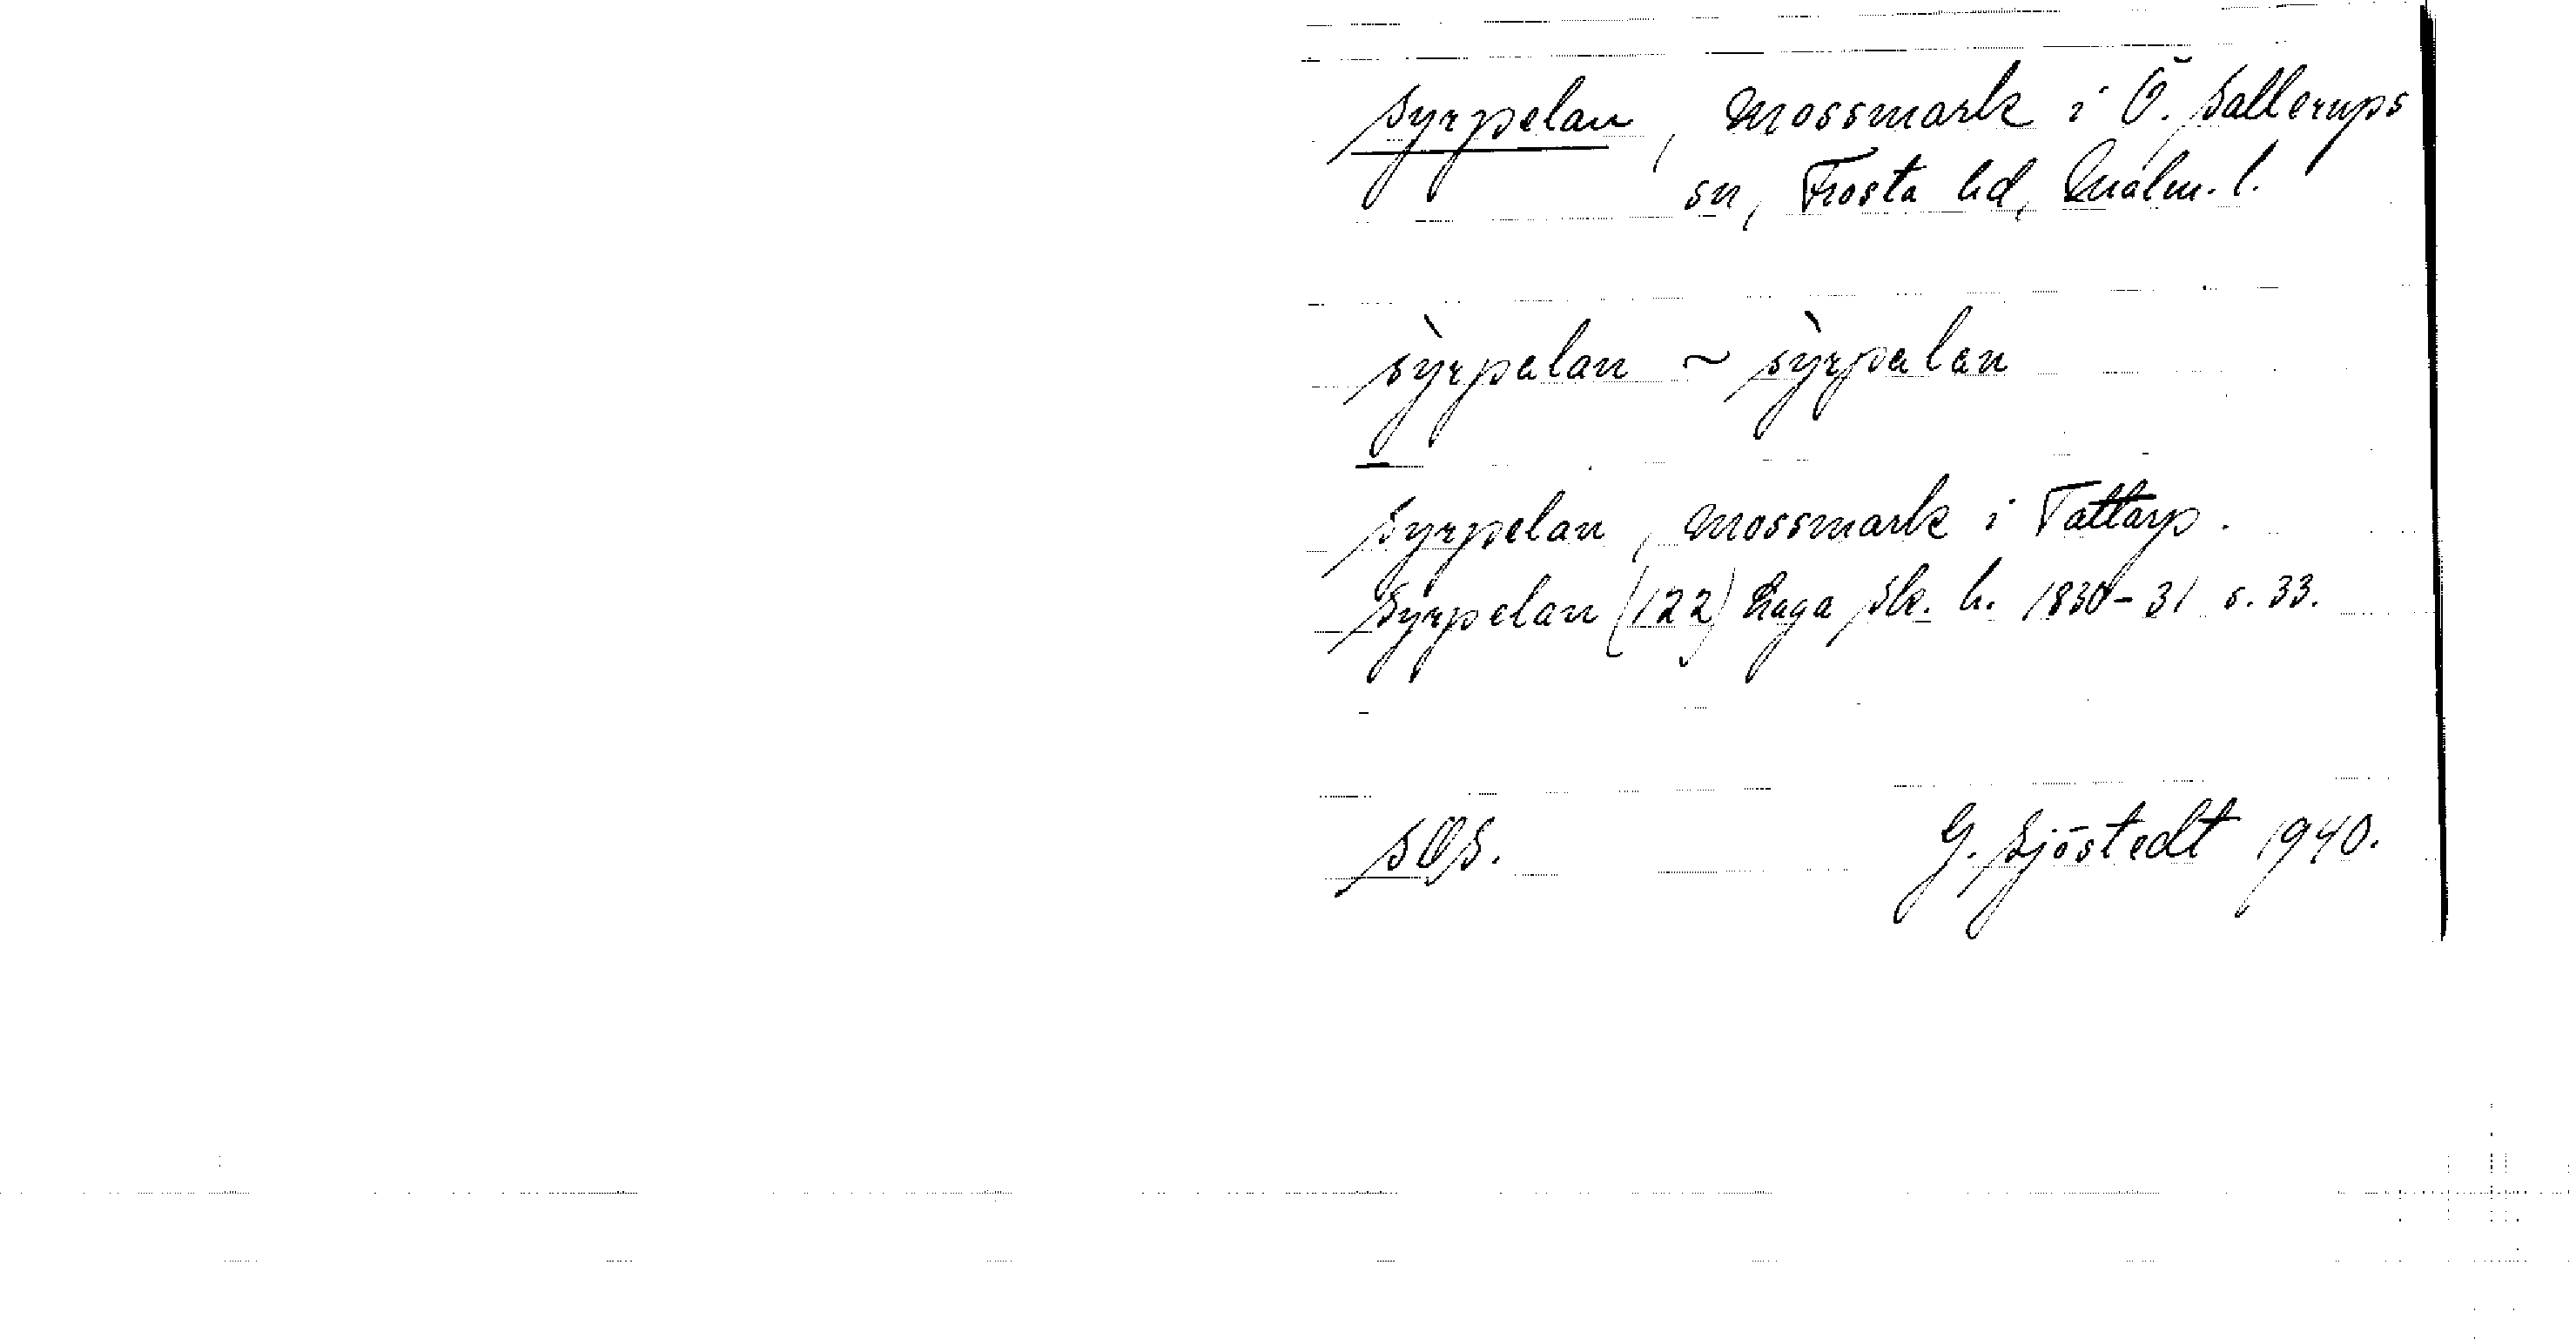 Syrpelan, Mossmark i Ö. Sallerups
sn, Frosta hd, Malm. l.
sỳrpalan ~ sỳrpalan
Syrpelan, Mossmark i Tattarp.
Syrpelan (122) Laga sk. h. 1830-31 s. 33.
SOS.
G. Sjöstedt 1940.